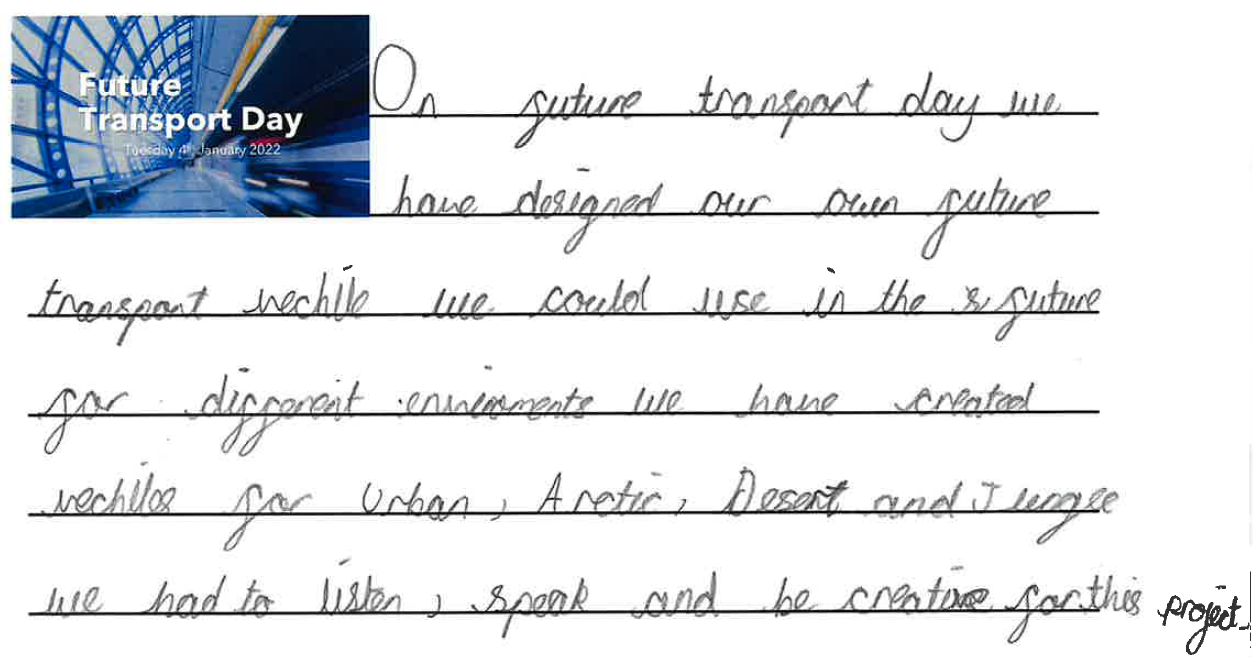 Future
Transport Day
Tuesday 4th January 2022
On future transport day we
have designed our own future
transport vechile we could use in the future
for different enviroments we have created
vechiles for Urban, Arctic, Desert and Jungle
we had to listen, speak and be creative for this project.